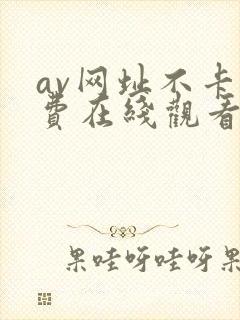 av网址不卡
費在綫觀看
果哇呀哇呀果